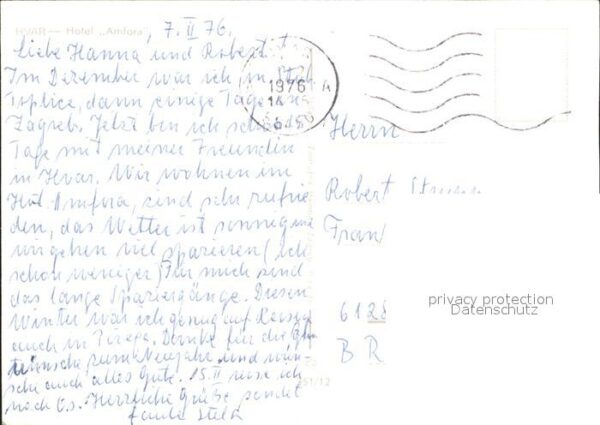 HVAR — Hotel „Amfora"
, 7. II 76.
Liebe Hanna und Robert!
Im Dezember war ich in
Toplice, dann einige Tage in
Zagreb. Jetzt bin ich schon
Tage mit meiner Freundin
in Hvar. Wir wohnen im
Hot. Amfora, sind sehr zufrie
den, das Wetter ist sonnig
wir gehen viel spazieren (ich
schon weniger) für mich sind
das lange Spaziergänge. Diesen
Winter war ich genug auf Reisen
auch in Danke für die
wünsche zum Neujahr und wün-
sche auch alles Gute. 15. II reise ich
nach Os. Herzliche Grüße sendet
1976
Herrn
Robert
6128
B R
privacy protection
Datenschutz
251/12